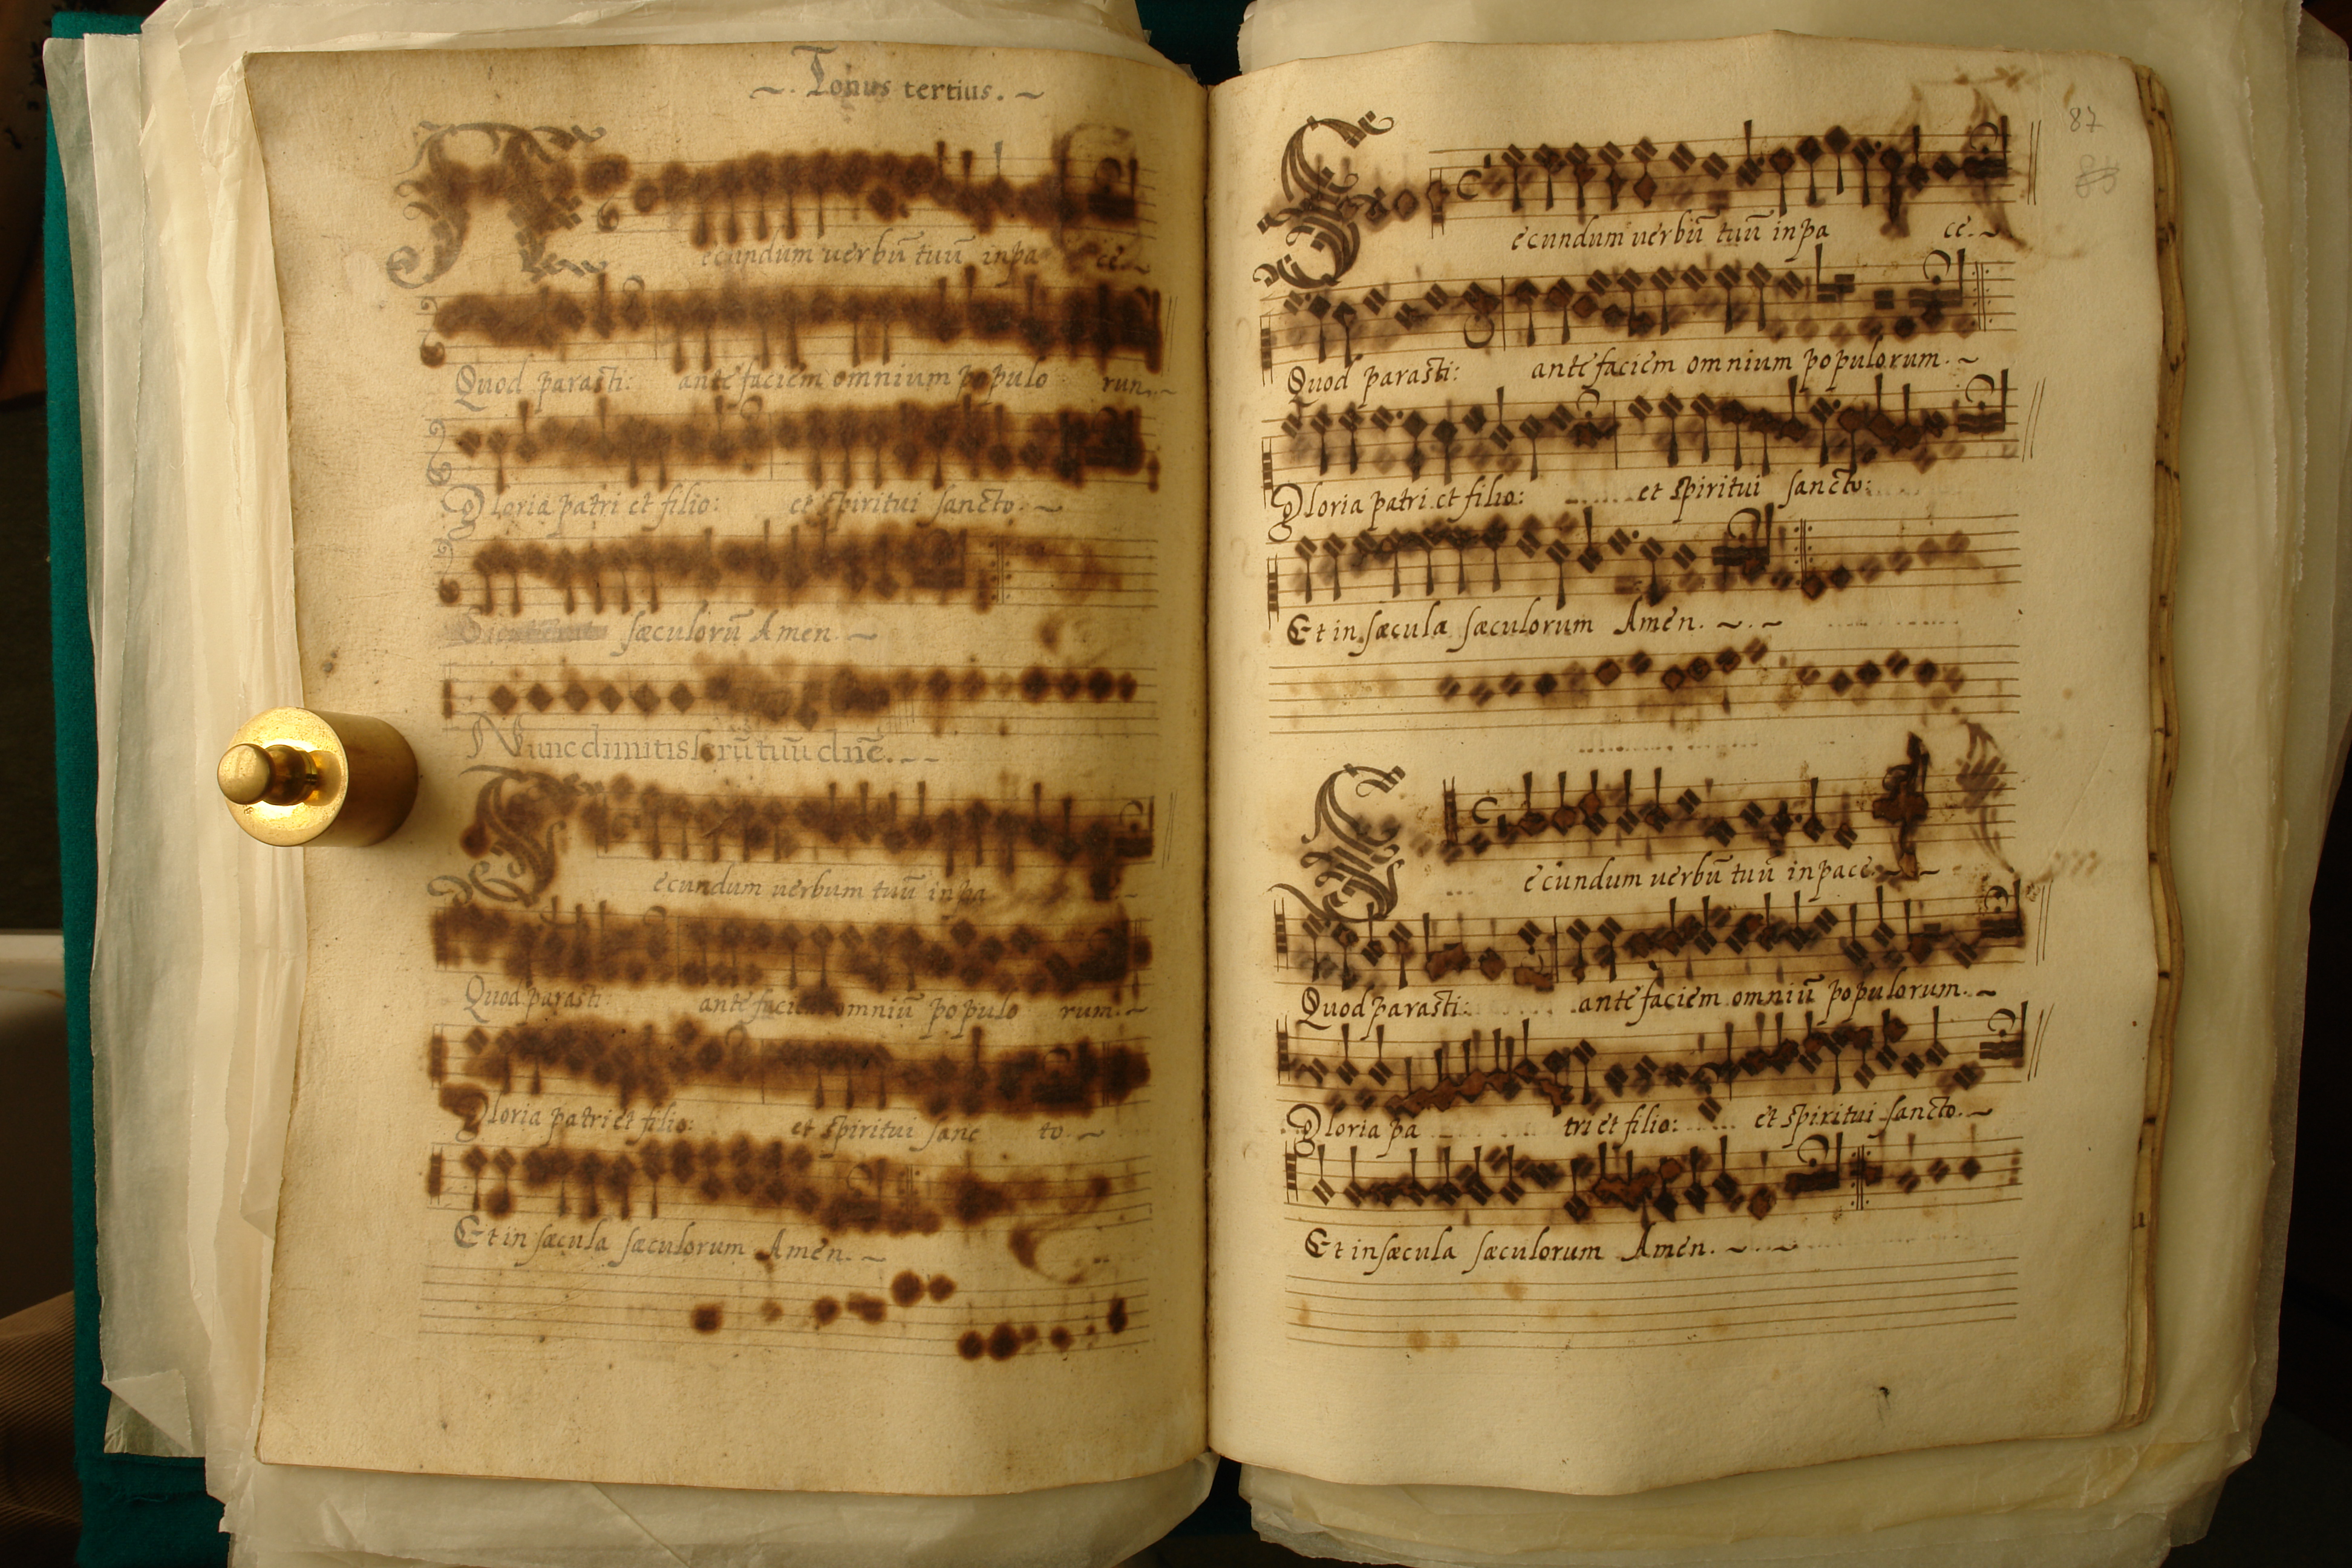 ~. Tonus tertius. ~
ecundum uerbū tuū inpa ce.~
Quod parasti: ante faciem omnium populo run.~
Gloria patri et filio: et spiritui sancto. ~
sæculorū Amen. ~
Nunc dimitis seruū tuū dnē. ~ ~
ecundum uerbum tuū in pa
Quod parasti: ante faciem omniū populo rum. ~
Gloria patri et filio: et spiritui sanc to. ~
Et in sæcula sæculorum Amen. ~
87
ecundum uerbū tuū inpa ce. ~
Quod parasti: ante faciem omnium populorum. ~
Gloria patri et filio: et spiritui sancto:
Et in sæcula sæculorum Amen. ~ . ~
ecundum uerbū tuū inpace. ~ ~
Quod parasti: ante faciem omniū populorum. ~
Gloria pa tri et filio: et spiritui sancto. ~
Et in sæcula sæculorum Amen. ~ . ~